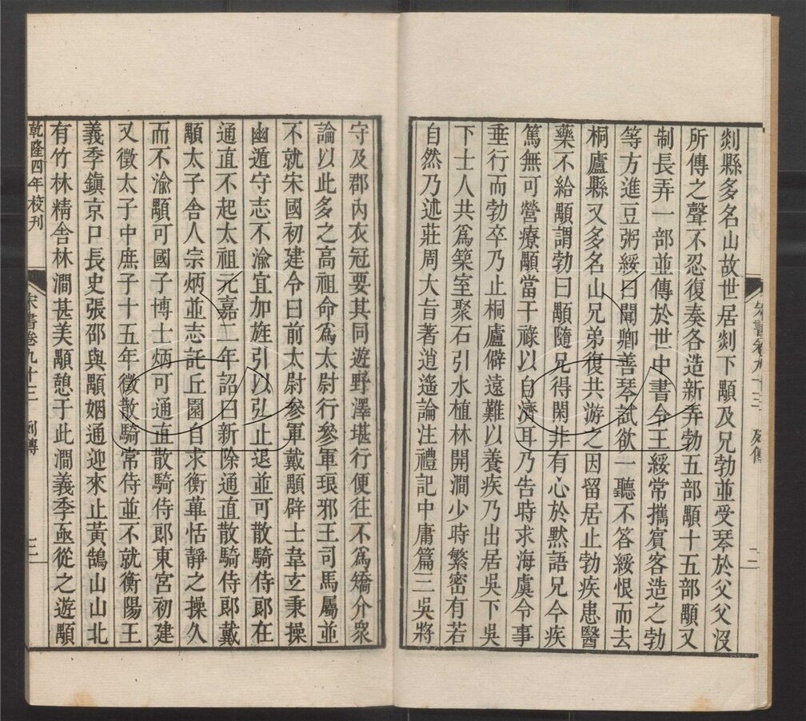 剡縣多名山故世居剡下顒及兄勃並受琴於父父沒
所傳之聲不忍復奏各造新弄勃五部顒十五部顒又
制長弄一部並傳於世中書令王綏常攜賓客造之勃
等方進豆粥綏曰聞卿善琴試欲一聽不答綏恨而去
桐廬縣又多名山兄弟復共游之因留居止勃疾患醫
藥不給顒謂勃曰顒隨兄得閑非有心於默語兄今疾
篤無可營療顒當干祿以自濟耳乃告時求海虞令事
垂行而勃卒乃止桐廬僻遠難以養疾乃出居吳下吳
下士人共爲築室聚石引水植林開澗少時繁密有若
自然乃述莊周大旨著逍遙論注禮記中庸篇三吳將
守及郡內衣冠要其同遊野澤堪行便往不爲矯介衆
論以此多之高祖命爲太尉行參軍琅邪王司馬屬並
不就宋國初建令曰前太尉參軍戴顒辟士韋玄秉操
幽遁守志不渝宜加旌引以弘止退並可散騎侍郎在
通直不起太祖元嘉二年詔曰新除通直散騎侍郎戴
顒太子舍人宗炳並志託丘園自求衡蓽恬靜之操久
而不渝顒可國子博士炳可通直散騎侍郎東宮初建
又徵太子中庶子十五年徵散騎常侍並不就衡陽王
義季鎮京口長史張邵與顒姻通迎來止黃鵠山山北
有竹林精舍林澗甚美顒憩于此澗義季亟從之遊顒
乾隆四年校刊
宋書卷九十三
列傳
三